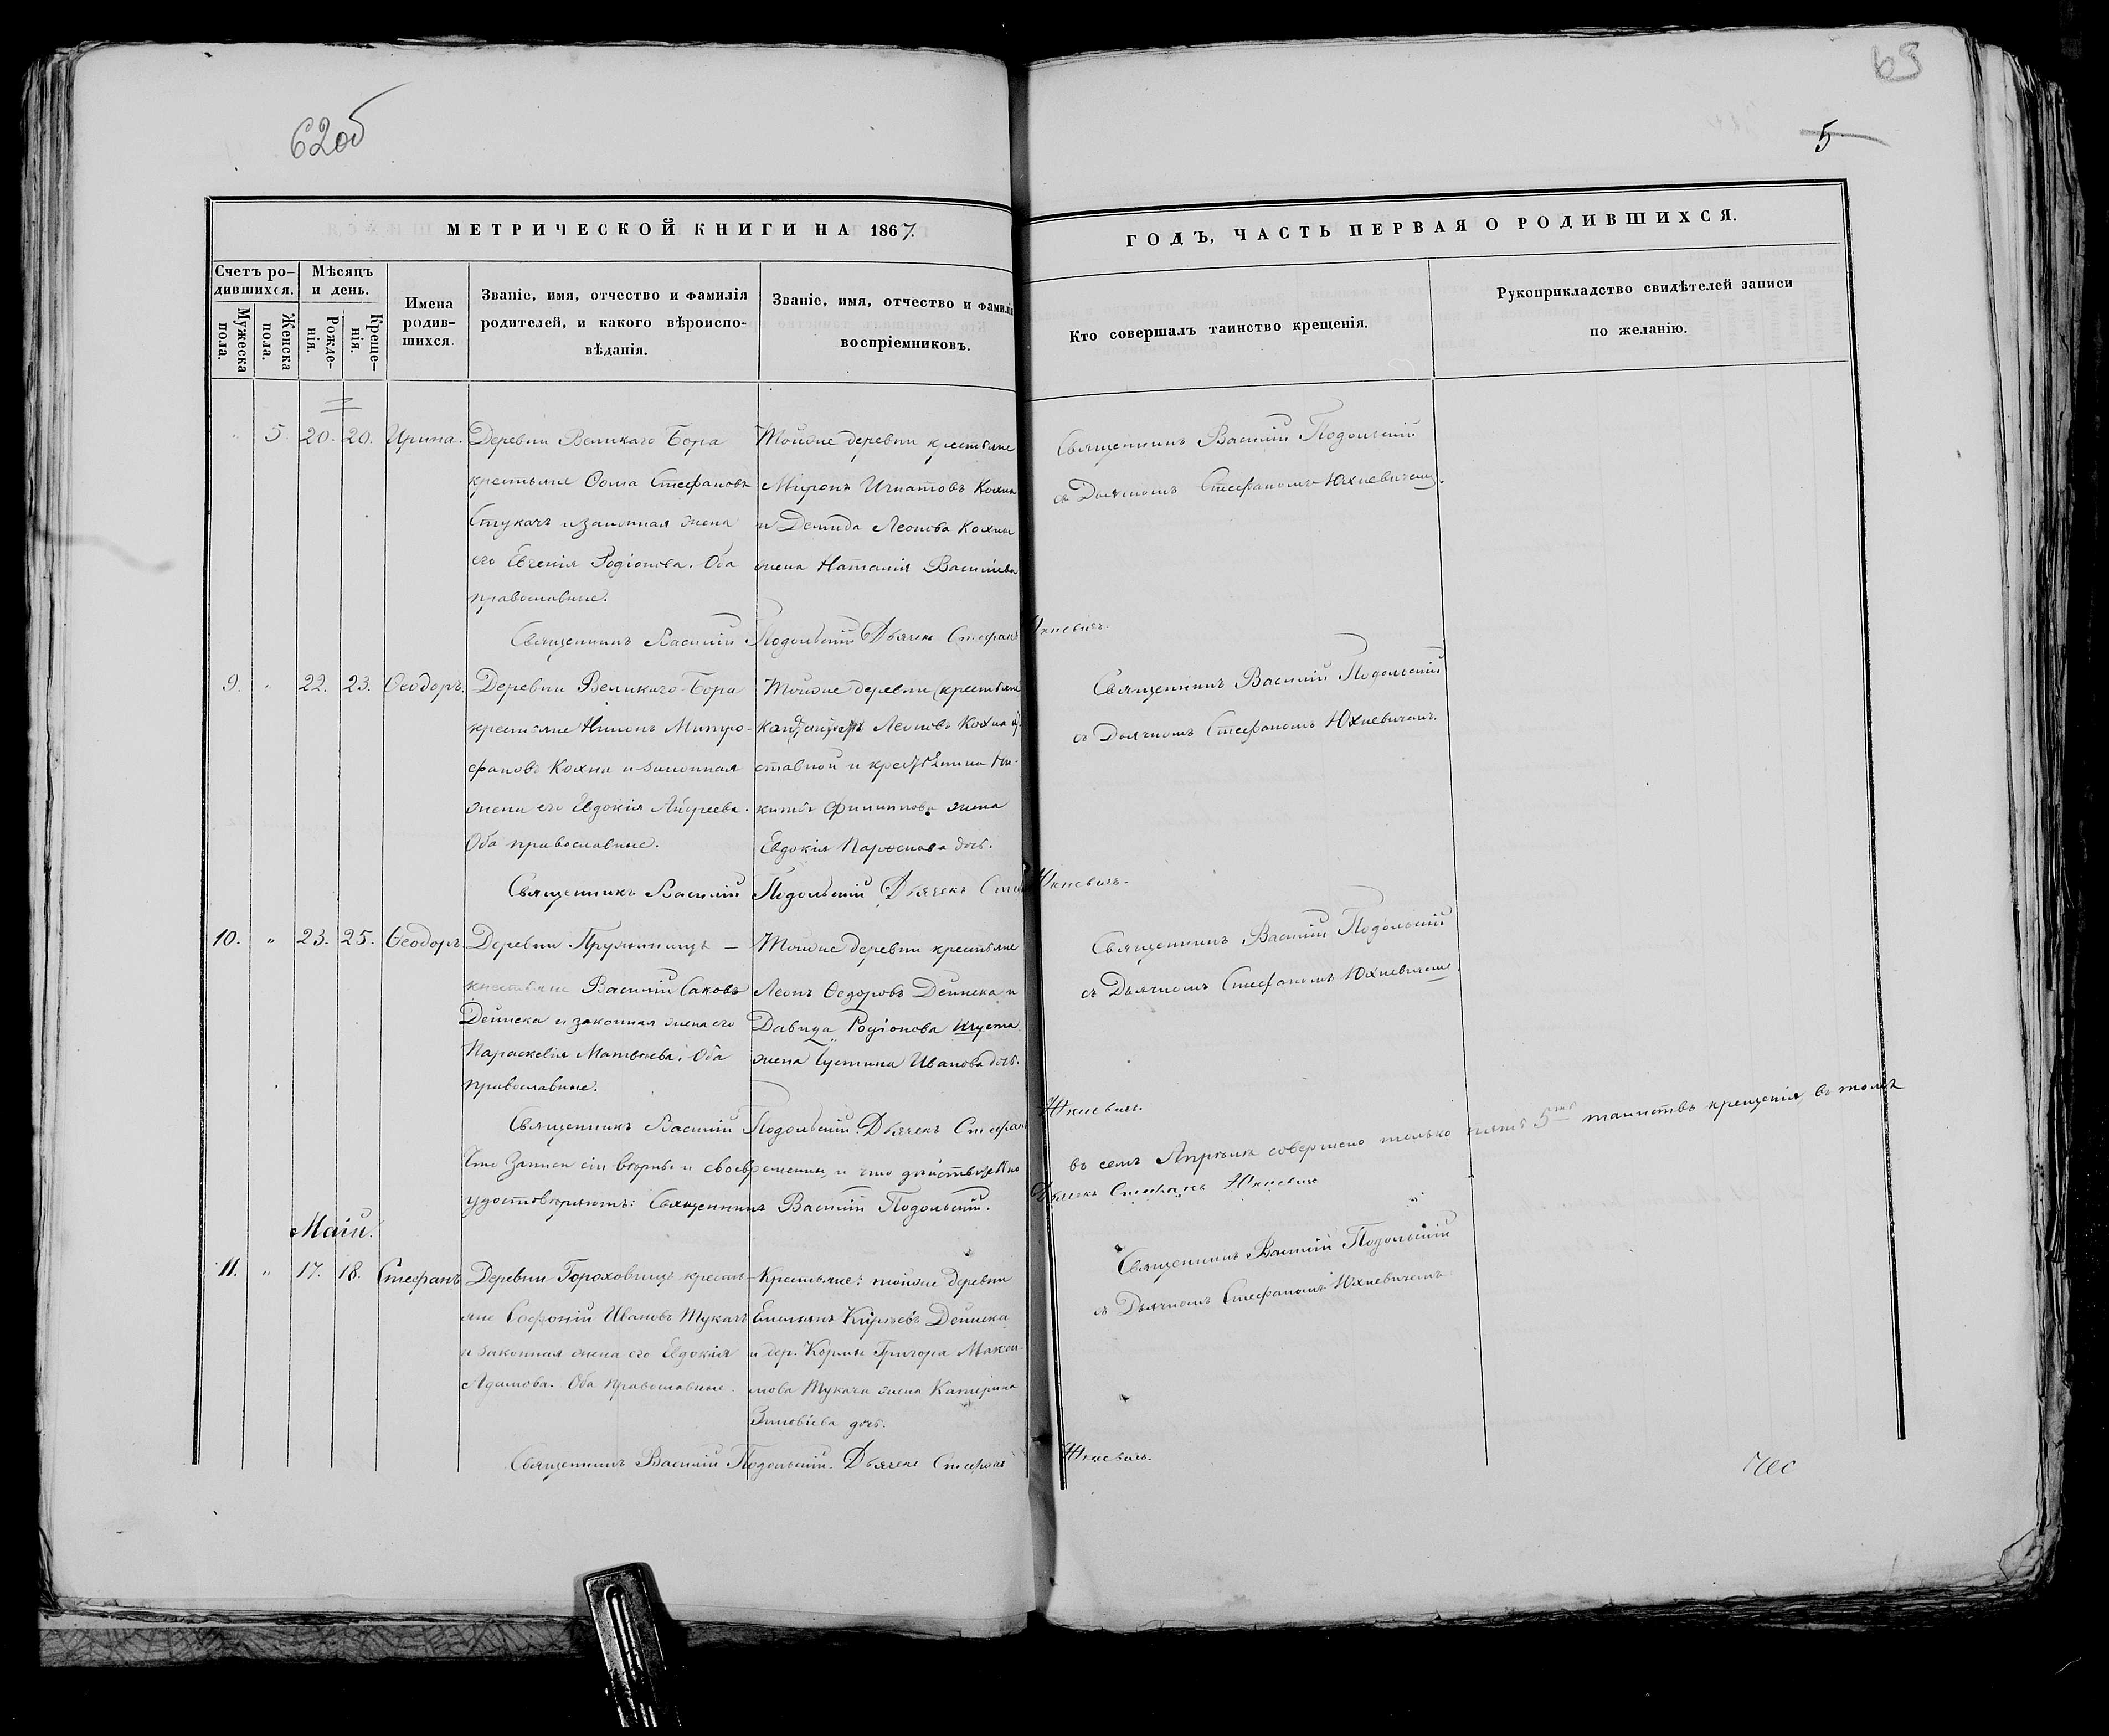 62об
63
5
МЕТРИЧЕСКОЙ КНИГИ НА 1867.
ГОДЪ, ЧАСТЬ ПЕРВАЯ О РОДИВШИХСЯ.
Счетъ родившихся.
Мужеска пола.
Женска пола.
Мѣсяцъ и день.
Рожденія.
Крещенія.
Имена родившихся.
Званіе, имя, отчество и фамилія
родителей, и какого вѣроиспо-
вѣданія.
Званіе, имя, отчество и фамилія
воспріемниковъ.
Кто совершалъ таинство крещенія.
Рукоприкладство свидѣтелей записи
по желанію.
5. 20. 20. Ирина.
Деревни Великаго Бора
крестьяне Ѳома Стефановъ
Стукачъ и законная жена
его Евгенія Родіонова. Оба
православные.
Тойже деревни крестьяне
Миронъ Игнатовъ Кохна
и Демида Леонова Кохны
жена Наталія Васильева
Священникъ Василій Подольскій
съ Дьячкомъ Стефаномъ Юхневичемъ.
Священникъ Василій Подольскій Дьячекъ Стефанъ Юхневичъ.
9. " 22. 23. Ѳеодоръ.
Деревни Великаго Бора
крестьяне Никонъ Митро-
фановъ Кохна и законная
жена его Евдокія Андреева.
Оба православные.
Тойже деревни крестьяне
Леоновъ Кохна
и
Филиппова жена
Евдокія дочь.
Священникъ Василій Подольскій
съ Дьячкомъ Стефаномъ Юхневичемъ.
Священникъ Василій Подольскій Дьячекъ Юхневичъ.
10. " 23. 25. Ѳеодоръ
Деревни —
крестьяне Василій Саковъ
Дейнека и законная жена его
Параскевія Матвѣева. Оба
православные.
Тойже деревни крестьяне
Леонъ Ѳедоровъ Дейнека и
Давида Родіонова Шуста
жена Іустина Иванова дочь.
Священникъ Василій Подольскій
съ Дьячкомъ Стефаномъ Юхневичемъ.
Священникъ Василій Подольскій. Дьячекъ Стефанъ Юхневичъ.
Что Записи сіи вѣрны и своевременны, и что дѣйствительно въ семъ Апрѣлѣ совершено только пять 5ть таинствъ крещенія, въ томъ
удостовѣряютъ: Священникъ Василій Подольскій. Дьячекъ Стефанъ Юхневичъ
Маій.
11. " 17. 18. Стефанъ
Деревни Гороховищъ кресть-
яне Софоній Ивановъ Тукачъ
и законная жена его Евдокія
Адамова. Оба православные.
Крестьяне: тойже деревни
Емельянъ Дейнека
и дер. Кормы Григора Макси-
мова Тукача жена Катерина
Зиновіева дочь.
Священникъ Василій Подольскій
съ Дьячкомъ Стефаномъ Юхневичемъ
Священникъ Василій Подольскій. Дьячекъ Стефанъ Юхневичъ.